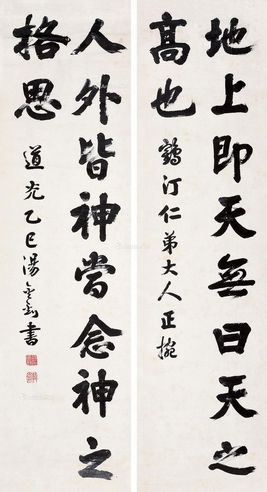 地上即天無曰天之
高也
鶴汀仁弟大人正掾
人外皆神當念神之
格思
道光乙巳湯金釗書